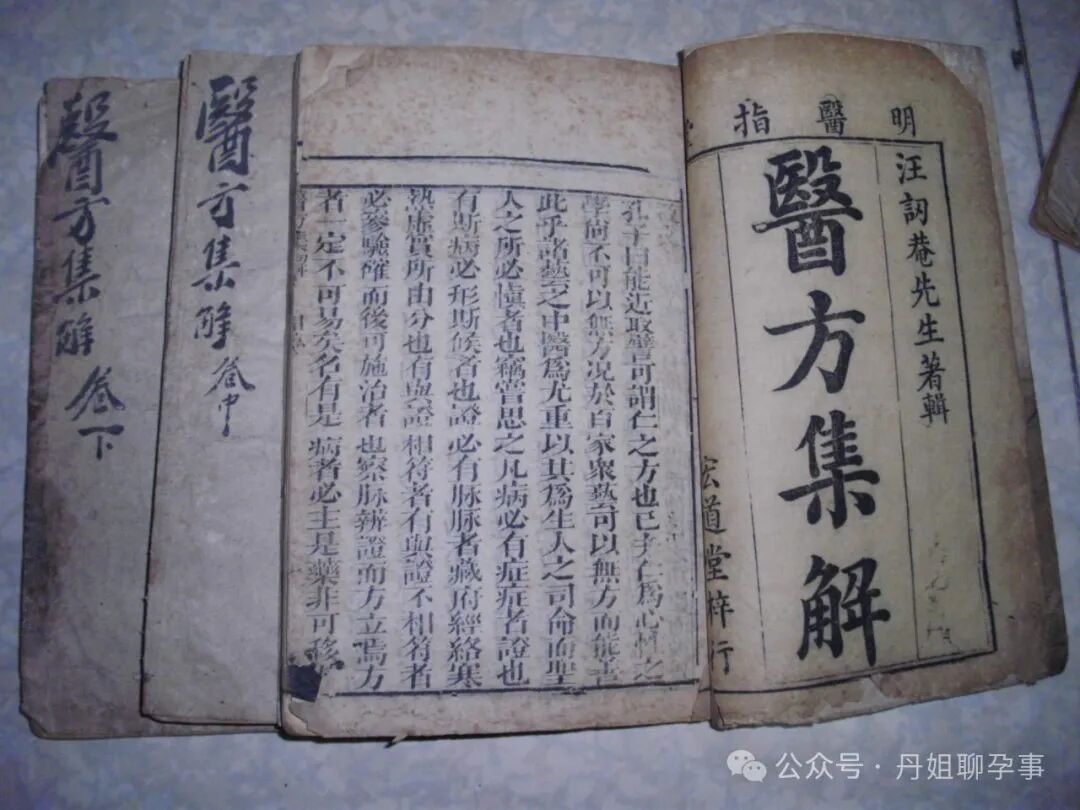 明醫指
汪訒菴先生著輯
醫方集解
宏道堂梓行
孔子曰能近取譬可謂仁之方也已夫仁爲心性之
學尚不可以無方况於百家衆藝可以無方而能善
此乎諸藝之中醫爲尤重以其爲生人之司命而聖
人之所必慎者也竊嘗思之凡病必有症症者證也
有斯病必形斯候者也證必有脉脉者藏府經絡寒
熱虚實所由分也有與證相符者有與證不相符者
必參驗確而後可施治者也察脉辨證而方立焉方
者一定不可易之名有是病者必主是藥非可移
醫方集解 卷中
醫方集解 卷下
公众号·丹姐聊孕事